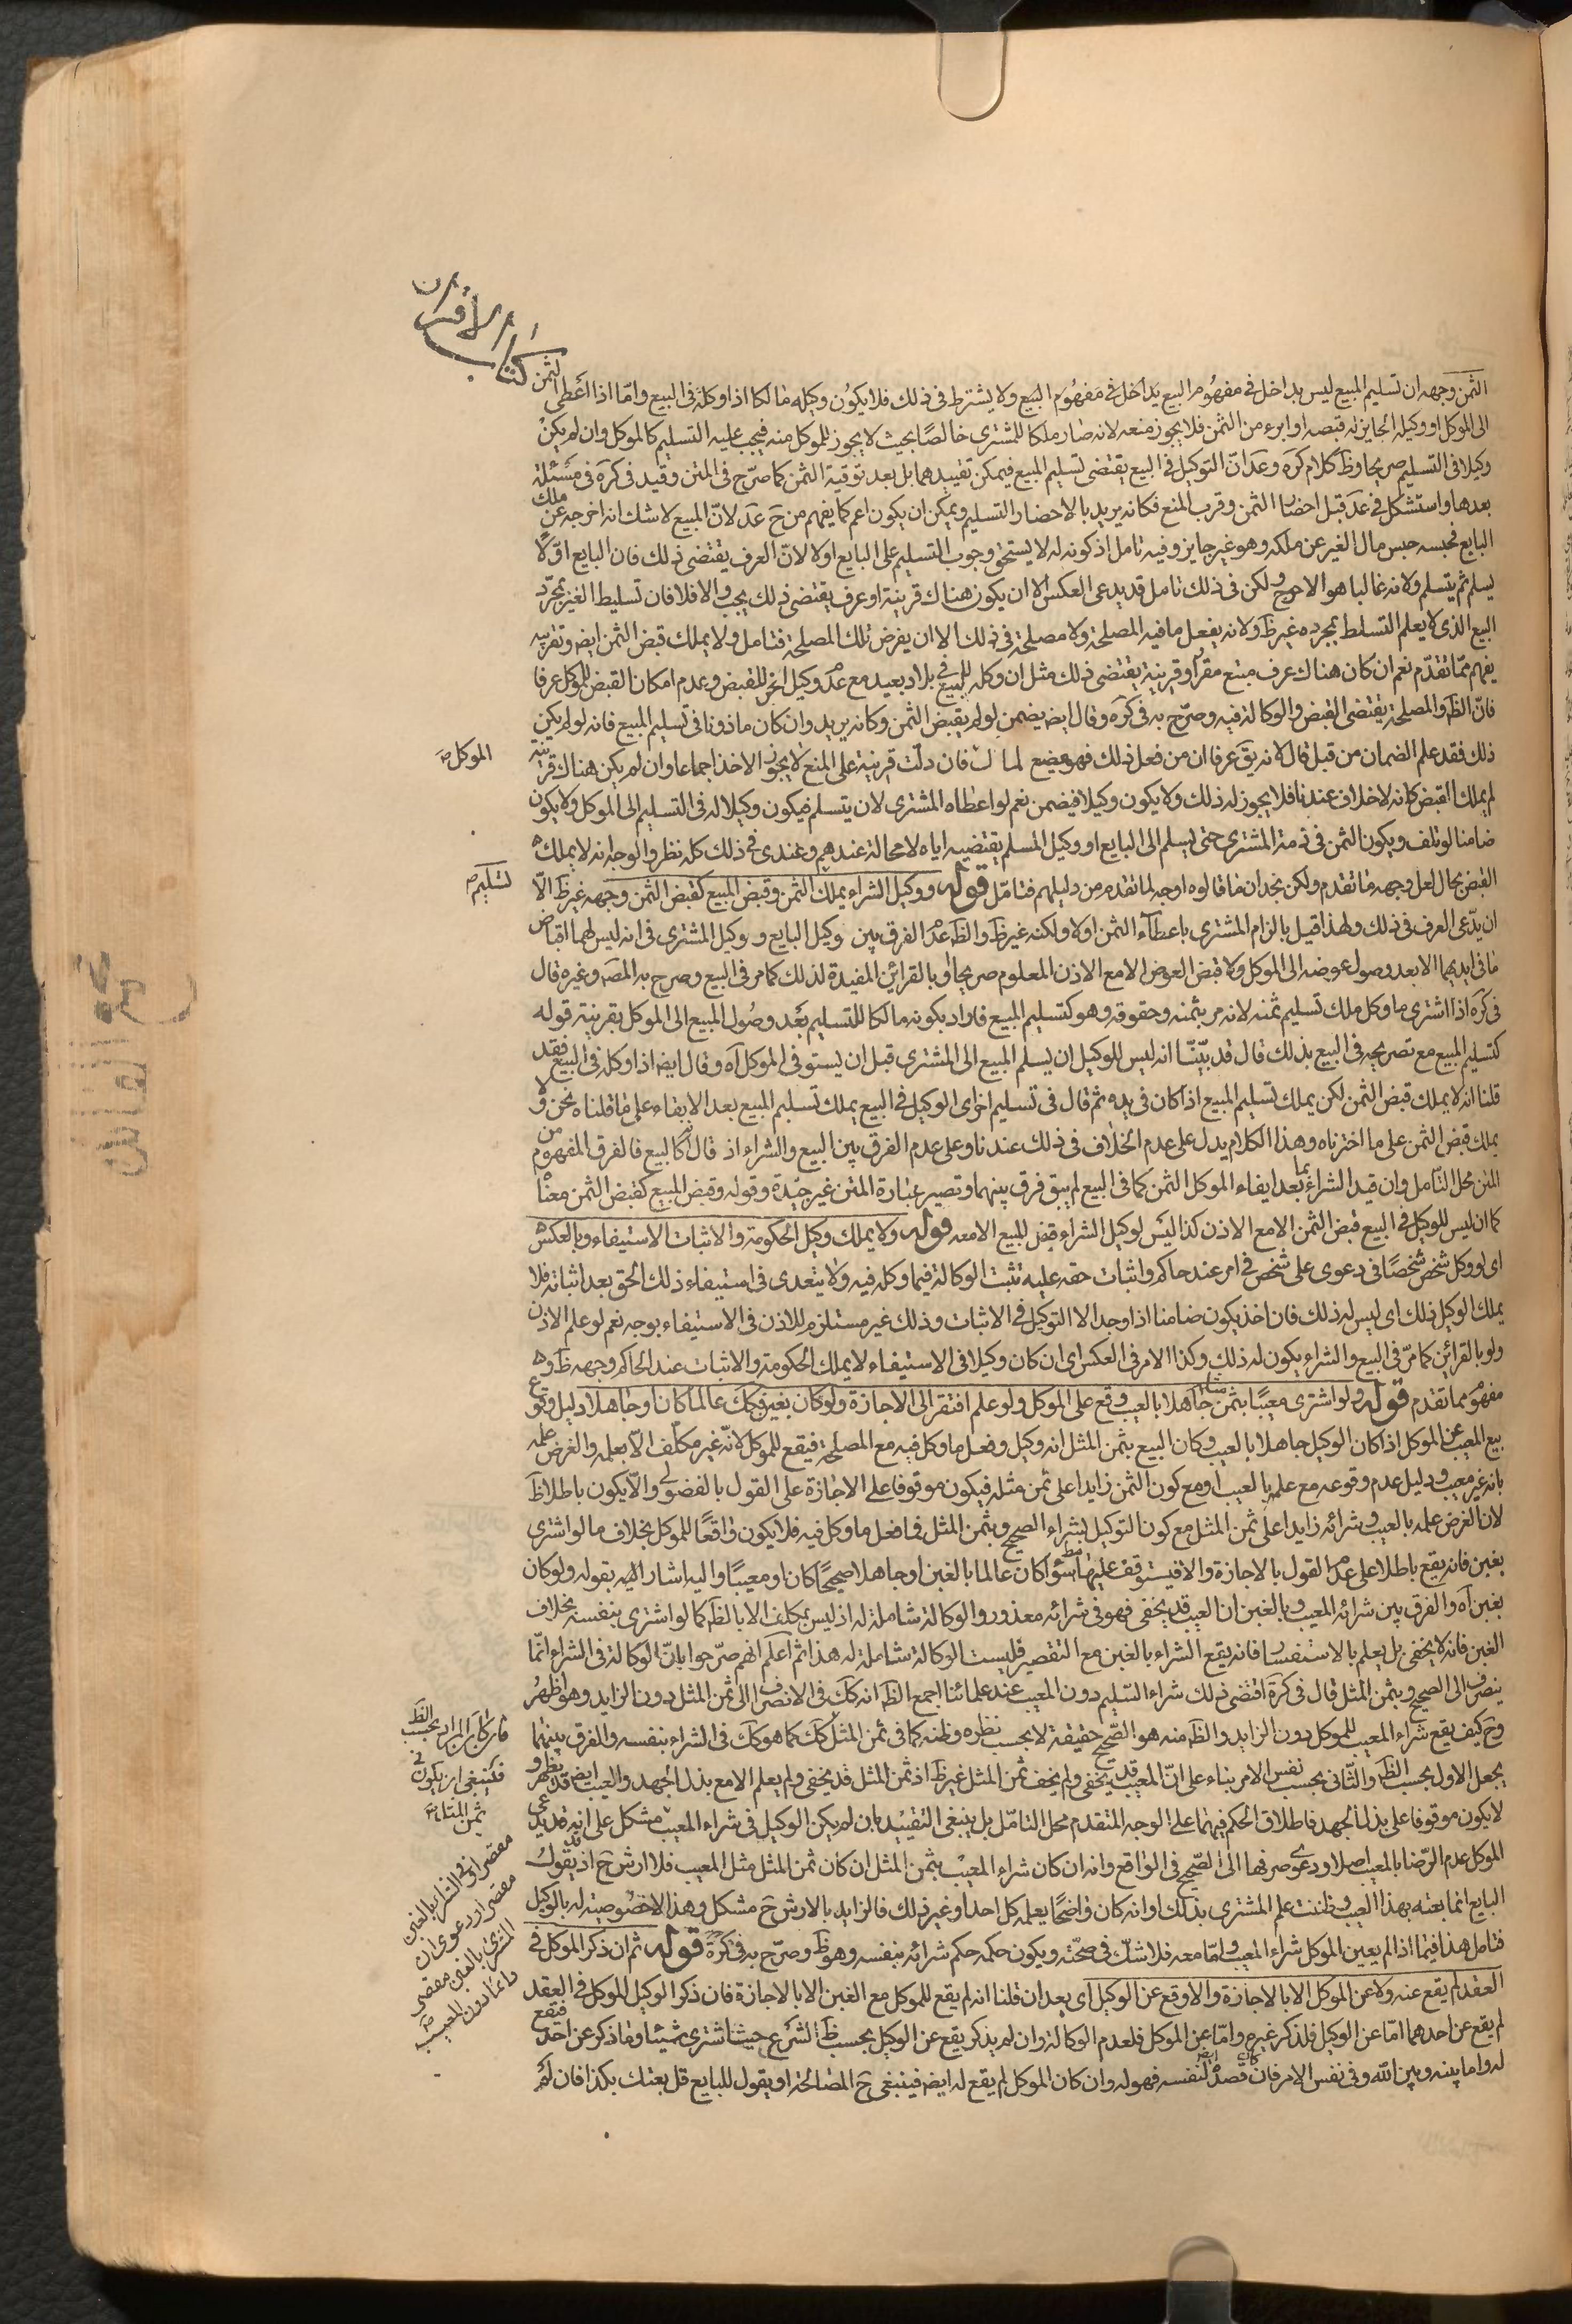 كتاب الأقران
الثمن وجهه ان تسليم المبيع ليس بداخل فى مفهوم البيع بداخل فى مفهوم البيع ولا يشترط فى ذلك فلا يكون وكيله مالكا اذا وكله فى البيع وامّا اذا اعطى الثمن
الى الموكل او وكيله الجايز له قبضه او ابرء من الثمن فلا يجوز منعه لانه صار ملكا للمشترى خالصًا بحيث لا يجوز للموكل منه فيجب عليه التسليم كالموكل وان لم يكن
وكيلا فى التسليم صريحا وظ كلام كره وعد انّ التوكيل فى البيع يقتضى تسليم المبيع فيمكن تقييدهما بل بعد توقية الثمن كما صرّح فى المتن وقيد فى كره فى مسئلة
بعدها واستشكل فى عد قبل احضار الثمن وقرب المنع فكانه يريد بالاحضار التسليم ويمكن ان يكون اعم كما يفهم من ح عد لانّ المبيع لا شك انه اخرجه عن ملك
البايع فحبسه حبس مال الغير عن ملكه وهو غير جايز وفيه تامل اذ كونه له لا يستحق وجوب التسليم على البايع اولا لانّ العرف يقتضى ذلك فان البايع اوّلًا
يسلم ثم يتسلم ولانه غالبا هو الاحوج ولكن فى ذلك تامل قد يدعى العكس الا ان يكون هناك قرينة او عرف يقتضى ذلك يجب والا فلا فان تسليط الغير بمجرّد
البيع الذى لا يعلم التسلط بمجرده غير ظ ولانه يفعل ما فيه المصلحة ولا مصلحة فى ذلك الا ان يفرض تلك المصلحة فتامل ولا يملك قبض الثمن ايض وتقريبه
يفهم ممّا تقدّم نعم ان كان هناك عرف متبع مقرّ او قرينة يقتضى ذلك مثل ان وكله للبيع فى بلاد بعيد مع عدم وكيل اخر للقبض وعدم امكان القبض للموكل عرفا
فانّ الظ والمصلحة يقتضى القبض والوكالة فيه وصرّح به فى كره وقال ايض يضمن لو لم يقبض الثمن وكانه يريد وان كان ماذونا فى تسليم المبيع فانه لو لم يكن
ذلك فقد علم الضمان من قبل قال لانه يق عرفا ان من فعل ذلك فهو مضيع لمال فان دلّت قرينة على المنع لا يجوز الاخذ اجماعا وان لم يكن هناك قرينة
لم يملك القبض كانه لا خلاف عندنا فلا يجوز له ذلك ولا يكون وكيلا فيضمن نعم لو اعطاه المشترى لان يتسلم فيكون وكيلا له فى التسليم الى الموكل ولا يكون
ضامنا لو تلف ويكون الثمن فى ذمة المشترى حتى يسلم الى البايع او وكيل المسلم يقتضيه اياه لا محالة عندهم وعندى فى ذلك كله نظر والوجه انه لا يملك
القبض بحال لعل وجهه ما تقدم ولكن نجد ان ما قالوه اوجه لما تقدم من دليلهم فتامّل قوله ووكيل الشراء يملك الثمن وقبض المبيع كقبض الثمن وجهه غير ظ الّا
ان يدّعى العرف فى ذلك ولهذا قيل بالزام المشترى باعطاء الثمن اولا ولكنه غير ظ والظ عدم الفرق بين وكيل البايع و وكيل المشترى فى انه ليس لهما اقباض
ما فى ايديهما الا بعد وصول عوضه الى الموكل ولا قبض العوض الا مع الاذن المعلوم صريحا او بالقرائن المفيدة لذلك كما مر فى البيع وصرح به المص وغيره قال
فى كره اذا اشترى ما وكل ملك تسليم ثمنه لانه من يثمنه وحقوقه وهو كتسليم المبيع فاراد بكونه مالكا للتسليم بعد وصول المبيع الى الموكل بقرينة قوله
كتسليم المبيع مع تصريحه فى البيع بذلك قال قد بيّنّا انه ليس للوكيل ان يسلم المبيع الى المشترى قبل ان يستوفى الموكل اه وقال ايض اذا وكله فى البيع فقد
قلنا انه لا يملك قبض الثمن لكن يملك تسليم المبيع اذا كان فى يده ثم قال فى تسليم اخر اى الوكيل فى البيع يملك تسليم المبيع بعد الايفاء على ما قلناه نحن ولا
يملك قبض الثمن على ما اخترناه وهذا الكلام يدل على عدم الخلاف فى ذلك عندنا وعلى عدم الفرق بين البيع والشراء اذ قال كالبيع فالفرق المفهوم من
المتن محل التّامل وان قيد الشراء بما بعد ايفاء الموكل الثمن كما فى البيع لم يبق فرق بينهما وتصير عبارة المتن غير جيّدة وقوله وقبض المبيع كقبض الثمن معناه
كما ان ليس للوكيل فى البيع قبض الثمن الا مع الاذن كذا ليس لوكيل الشراء قبض المبيع الا معه قوله ولا يملك وكيل الحكومة والاثبات الاستيفاء وبالعكس
اى لو وكل شخص شخصًا فى دعوى على شخص فى امر عند حاكم واثبات حقه عليه تثبت الوكالة فيما وكله فيه ولا يتعدى فى استيفاء ذلك الحق بعد اثباته فلا
يملك الوكيل ذلك اى ليس له ذلك فان اخذ يكون ضامنا اذا وجد الا التوكيل فى الاثبات وذلك غير مستلزم للاذن فى الاستيفاء بوجه نعم لو علم الاذن
ولو بالقرائن كما مرّ فى البيع والشراء يكون له ذلك وكذا الامر فى العكس اى ان كان وكيلا فى الاستيفاء لا يملك الحكومة والاثبات عند الحاكم وجهه ظ وهو
مفهوم مما تقدم قوله ولو اشترى معيبًا بثمن مثله جاهلا بالعيب وقع على الموكل ولو علم افتقر الى الاجازة ولو كان بغبن فكك عالما كان او جاهلا دليل وقوع
بيع المعيب عن الموكل اذا كان الوكيل جاهلا بالعيب وكان البيع بثمن المثل انه وكيل وفعل ما وكل فيه مع المصلحة فيقع للموكل لانّه غير مكلّف الّا بعلمه والغرض علمه
بانه غير معيب ودليل عدم وقوعه مع علمه بالعيب او مع كون الثمن زايدا على ثمن مثله فيكون موقوفا على الاجازة على القول بالفضولى والّا يكون باطلا ظ
لان الغرض علمه بالعيب وشرائه زايدا على ثمن المثل مع كون التوكيل بشراء الصحيح وبثمن المثل فما فعل ما وكل فيه فلا يكون واقعًا للموكل بخلاف ما لو اشترى
بغبن فانه يقع باطلا على عدم القول بالاجازة والا فيتوقف عليها مط سواء كان عالما بالغبن او جاهلا صحيحًا كان او معيبًا واليه اشار المص بقوله ولو كان
بغبن اه والفرق بين شرائه المعيب وبالغبن ان العيب قد يخفى فهو فى شرائه معذور والوكالة شاملة له اذ ليس بمكلف الا بالظ كما لو اشترى بنفسه بخلاف
الغبن فانه لا يخفى بل يعلم بالاستفسار فانه يقع الشراء بالغبن مع التقصير فليست الوكالة شاملة له هذا ثم اعلم انهم صرّحوا بانّ الوكالة فى الشراء انّما
ينصرف الى الصحيح وبثمن المثل قال فى كرة اقتضى ذلك شراء السّليم دون المعيب عند علمائنا اجمع الظ انه كك فى الانصراف الى ثمن المثل دون الزايد وهو اظهر
وح كيف يقع شراء المعيب للموكل دون الزايد والظ منه هو الصّحيح حقيقة لا بحسب نظره وظنه كما فى ثمن المثل كك كما هو كك فى الشراء بنفسه والفرق بينهما
يجعل الاول بحسب الظ والثّانى بحسب نفس الامر بناء على انّ المعيب قد يخفى ولم يخف ثمن المثل غير ظ اذ ثمن المثل قد يخفى ولم يعلم الا مع بذل الجهد والعيب ايض قد يظهر و
لا يكون موقوفا على بذل الجهد فاطلاق الحكم فيهما على الوجه المتقدم محل التامّل بل ينبغى التقييد بان لم يكن الوكيل فى شراء المعيب مشكل على انه قد يدعى
الموكل عدم الرّضا بالمعيب اصلا ودعوى صرفها الى الصّحيح فى الواقع وانه ان كان شراء المعيب بثمن المثل ان كان ثمن المثل مثل المعيب فلا ارش ح اذ قد يقول
البايع انما بعته بهذا العيب وظننت علم المشترى بذلك او انه كان واضحًا يعلمه كل احد او غير ذلك فالزايد بالارش ح مشكل وهذا لا خصوصيته له بالوكيل
فتامل هذا فيما اذا لم يعين الموكل شراء المعيب وامّا معه فلا شكّ فى صحّته ويكون حكمه حكم شرائه بنفسه وهو ظ وصرّح به فى كرة قوله ثم ان ذكر الموكل فى
العقد لم يقع عنه ولا عن الموكل الا بالاجازة والا وقع عن الوكيل اى بعد ان قلنا انه لم يقع للموكل مع الغبن الا بالاجازة فان ذكر الوكيل الموكل فى العقد
لم يقع عن احدهما امّا عن الوكيل فلذكر غيره وامّا عن الموكل فلعدم الوكالة وان لم يذكر يقع عن الوكيل بحسب ظ الشّرع حيث اشترى شيئا وما ذكر عن احد فيقع
له واما بينه وبين الله وفى نفس الامر فان كان قصد لنفسه فهو له وان كان الموكل لم يقع له ايض فينبغى ح المصالحة او يقول للبايع قل بعتك بكذا فان لم
الموكل
لتسليم
فان كان المراد بحسب الظ
فينبغى ان يكون فى
ثمن المثل
مقصرا وفى الشراء بالغبن
مقصرا ودعوى ان
المشترى بالغبن مقصر
دائما دون المعيب